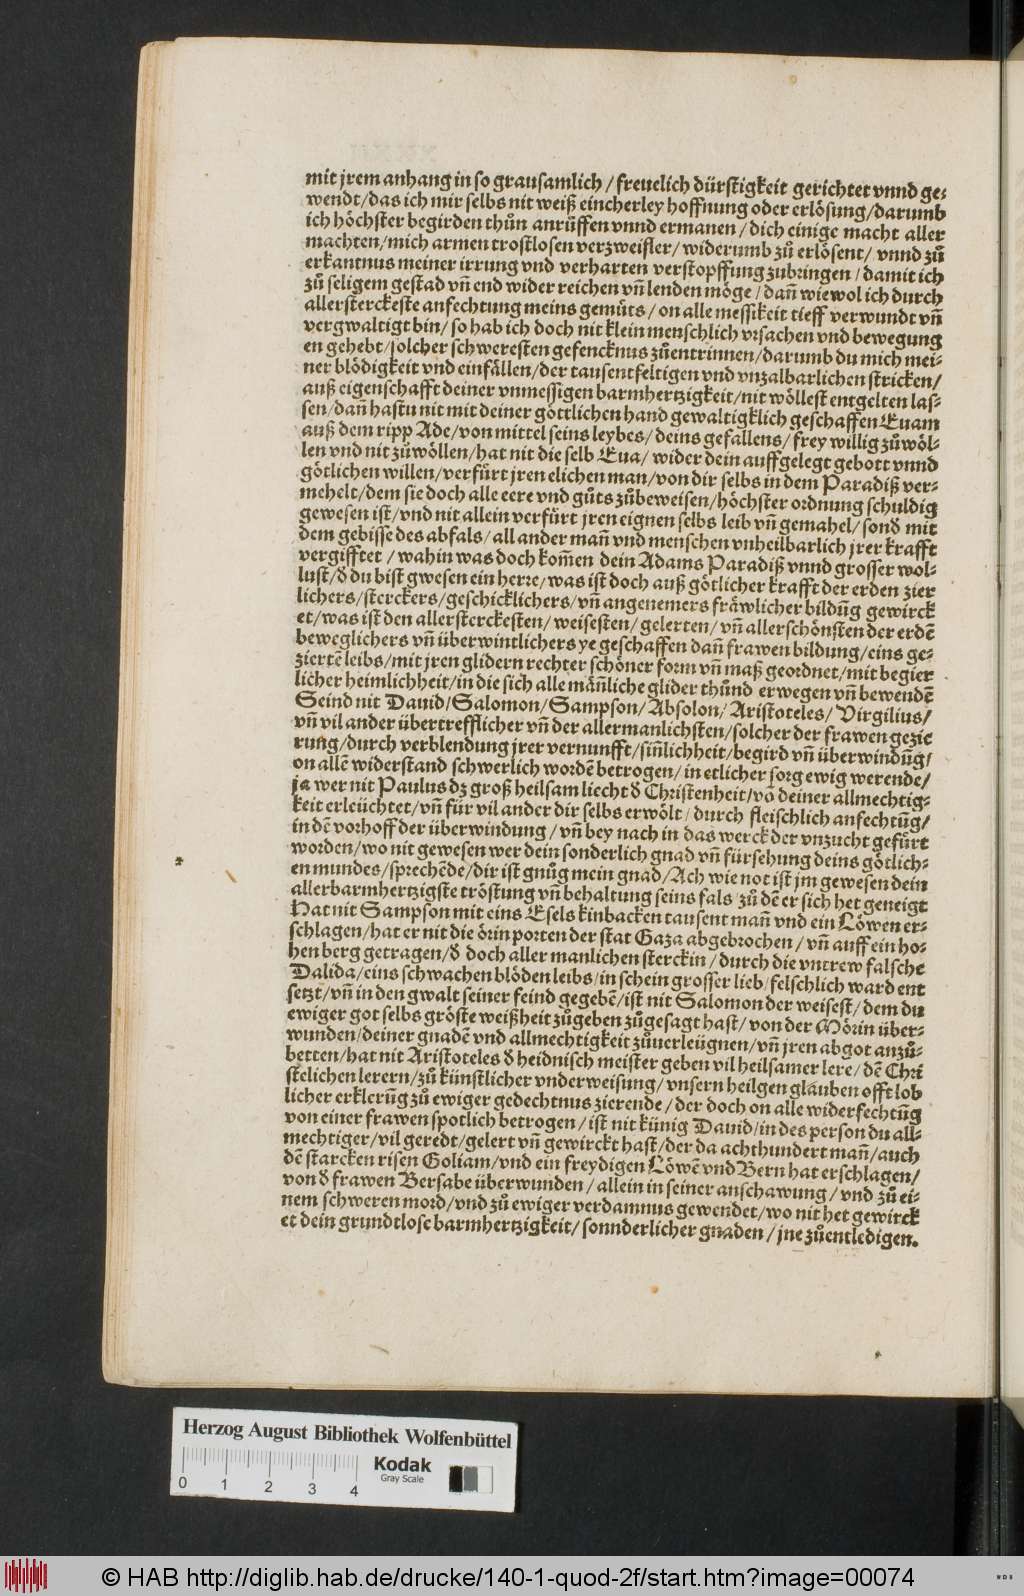 mit jrem anhang in so grausamlich / freuelich dürstigkeit gerichtet vnnd ge-
wendt/das ich mir selbs nit weiß eincherley hoffnung oder erlösung/darumb
ich höchster begirden thůn anrůffen vnnd ermanen / dich einige macht aller
machten/mich armen trostlosen verzweifler/ widerumb zů erlösent/ vnnd zů
erkantnus meiner irrung vnd verharten verstopffung zubringen / damit ich
zů seligem gestad vn̄ end wider reichen vn̄ lenden möge / dan̄ wiewol ich durch
allersterckeste anfechtung meins gemüts / on alle messikeit tieff verwundt vn̄
vergwaltigt bin/ so hab ich doch nit klein menschlich vrsachen vnd bewegung
en gehebt/solcher schweresten gefencknus zůentrinnen/darumb du mich mei-
ner blödigkeit vnd einfällen/der tausentfeltigen vnd vnzalbarlichen stricken/
auß eigenschafft deiner vnmessigen barmhertzigkeit/nit wöllest entgelten las-
sen/dan̄ hastu nit mit deiner göttlichen hand gewaltigklich geschaffen Euam
auß dem ripp Ade/von mittel seins leybes/deins gefallens/ frey willig zůwöl-
len vnd nit zůwöllen/hat nit die selb Eua/ wider dein auffgelegt gebott vnnd
götlichen willen/verfürt jren elichen man/von dir selbs in dem Paradiß ver-
mehelt/dem sie doch alle eere vnd gůts zůbeweisen/höchster ordnung schuldig
gewesen ist/vnd nit allein verfürt jren eignen selbs leib vn̄ gemahel/ sonđ mit
dem gebisse des abfals/all ander man̄ vnd menschen vnheilbarlich jrer krafft
vergifftet / wahin was doch kom̄en dein Adams Paradiß vnnd grosser wol-
lust/đ du bist gwesen ein herre/was ist doch auß götlicher krafft der erden zier
lichers/sterckers/geschicklichers/vn̄ angenemers fräwlicher bildūg gewirck
et/was ist den allersterckesten/ weisesten/ gelerten/ vn̄ allerschönsten der erdē
beweglichers vn̄ überwintlichers ye geschaffen dan̄ frawen bildung/eins ge-
ziertē leibs/mit jren glidern rechter schöner form vn̄ maß geordnet/mit begier
licher heimlichheit/in die sich alle män̄liche glider thůnd erwegen vn̄ bewendē
Seind nit Dauid/Salomon/Sampson/Absolon/ Aristoteles/ Virgilius/
vn̄ vil ander übertrefflicher vn̄ der allermanlichsten/solcher der frawen gezie
rung/durch verblendung jrer vernunfft/sin̄lichheit/begird vn̄ überwindūg/
on allē widerstand schwerlich wordē betrogen/ in etlicher sorg ewig werende/
ja wer nit Paulus dz groß heilsam liecht đ Christenheit/vō deiner allmechtig-
keit erleüchtet/vn̄ für vil ander dir selbs erwölt/ durch fleischlich anfechtūg/
in dē vorhoff der überwindung / vn̄ bey nach in das werck der vnzucht gefürt
worden/wo nit gewesen wer dein sonderlich gnad vn̄ fürsehung deins götlich-
en mundes/sprechēde/dir ist gnůg mein gnad/Ach wie not ist jm gewesen dein
allerbarmhertzigste tröstung vn̄ behaltung seins fals zů dē er sich het geneigt
Hat nit Sampson mit eins Esels kinbacken tausent man̄ vnd ein Löwen er-
schlagen/hat er nit die örin porten der stat Gaza abgebrochen / vn̄ auff ein ho-
hen berg getragen/đ doch aller manlichen sterckin / durch die vntrew falsche
Dalida/eins schwachen blöden leibs/in schein grosser lieb/felschlich ward ent
setzt/vn̄ in den gwalt seiner feind gegebē/ist nit Salomon der weisest/dem du
ewiger got selbs gröste weißheit zůgeben zůgesagt hast/ von der Mörin über-
wunden/deiner gnadē vnd allmechtigkeit zůuerleügnen/vn̄ jren abgot anzů-
betten/hat nit Aristoteles đ heidnisch meister geben vil heilsamer lere/dē Chri
stelichen lerern/zů künstlicher vnderweisung/ vnsern heilgen glauben offt lob
licher erklerūg zů ewiger gedechtnus zierende / der doch on alle widerfechtūg
von einer frawen spotlich betrogen / ist nit künig Dauid/in des person du all-
mechtiger/vil geredt/gelert vn̄ gewirckt hast/der da achthundert man̄/auch
dē starcken risen Goliam/vnd ein freydigen Löwē vnd Bern hat erschlagen/
von đ frawen Bersabe überwunden / allein in seiner anschawung / vnd zů ei-
nem schweren mord/vnd zů ewiger verdamnus gewendet/wo nit het gewirck
et dein grundtlose barmhertzigkeit/ sonnderlicher gnaden / jne zůentledigen.
Herzog August Bibliothek Wolfenbüttel
0 1 2 3 4
Kodak
Gray Scale
© HAB http://diglib.hab.de/drucke/140-1-quod-2f/start.htm?image=00074